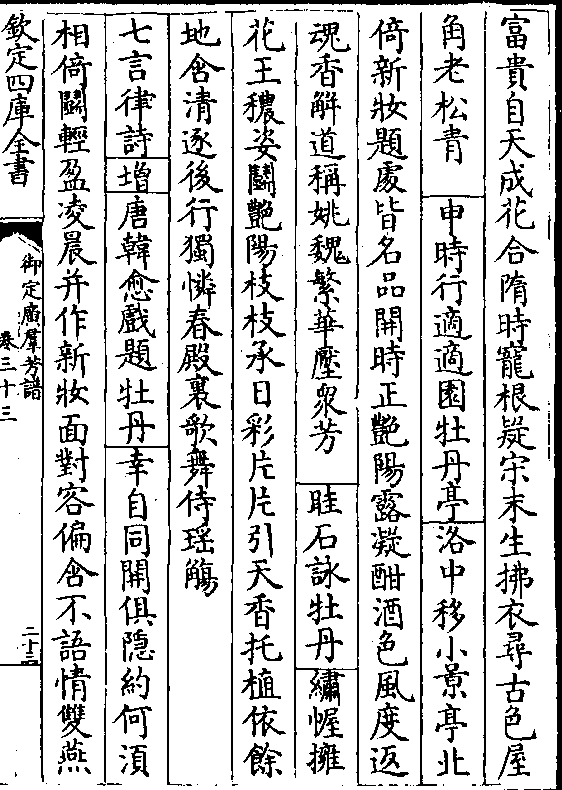 富貴自天成花合隋時寵根疑宋末生拂衣尋古色屋
角老松青　申時行適適園牡丹亭洛中移小景亭北
倚新妝題處皆名品開時正艷陽露凝酣酒色風度返
魂香解道稱姚魏繁華壓衆芳　眭石詠牡丹繡幄擁
花王穠姿鬭艷陽枝枝承日彩片片引天香托植依餘
地含清逐後行獨憐春殿裏歌舞侍瑶觴
七言律詩增唐韓愈戲題牡丹幸自同開俱隱約何須
相倚鬭輕盈凌晨并作新妝面對客偏含不語情雙燕
欽定四庫全書
御定廣羣芳譜
卷三十三
二十三